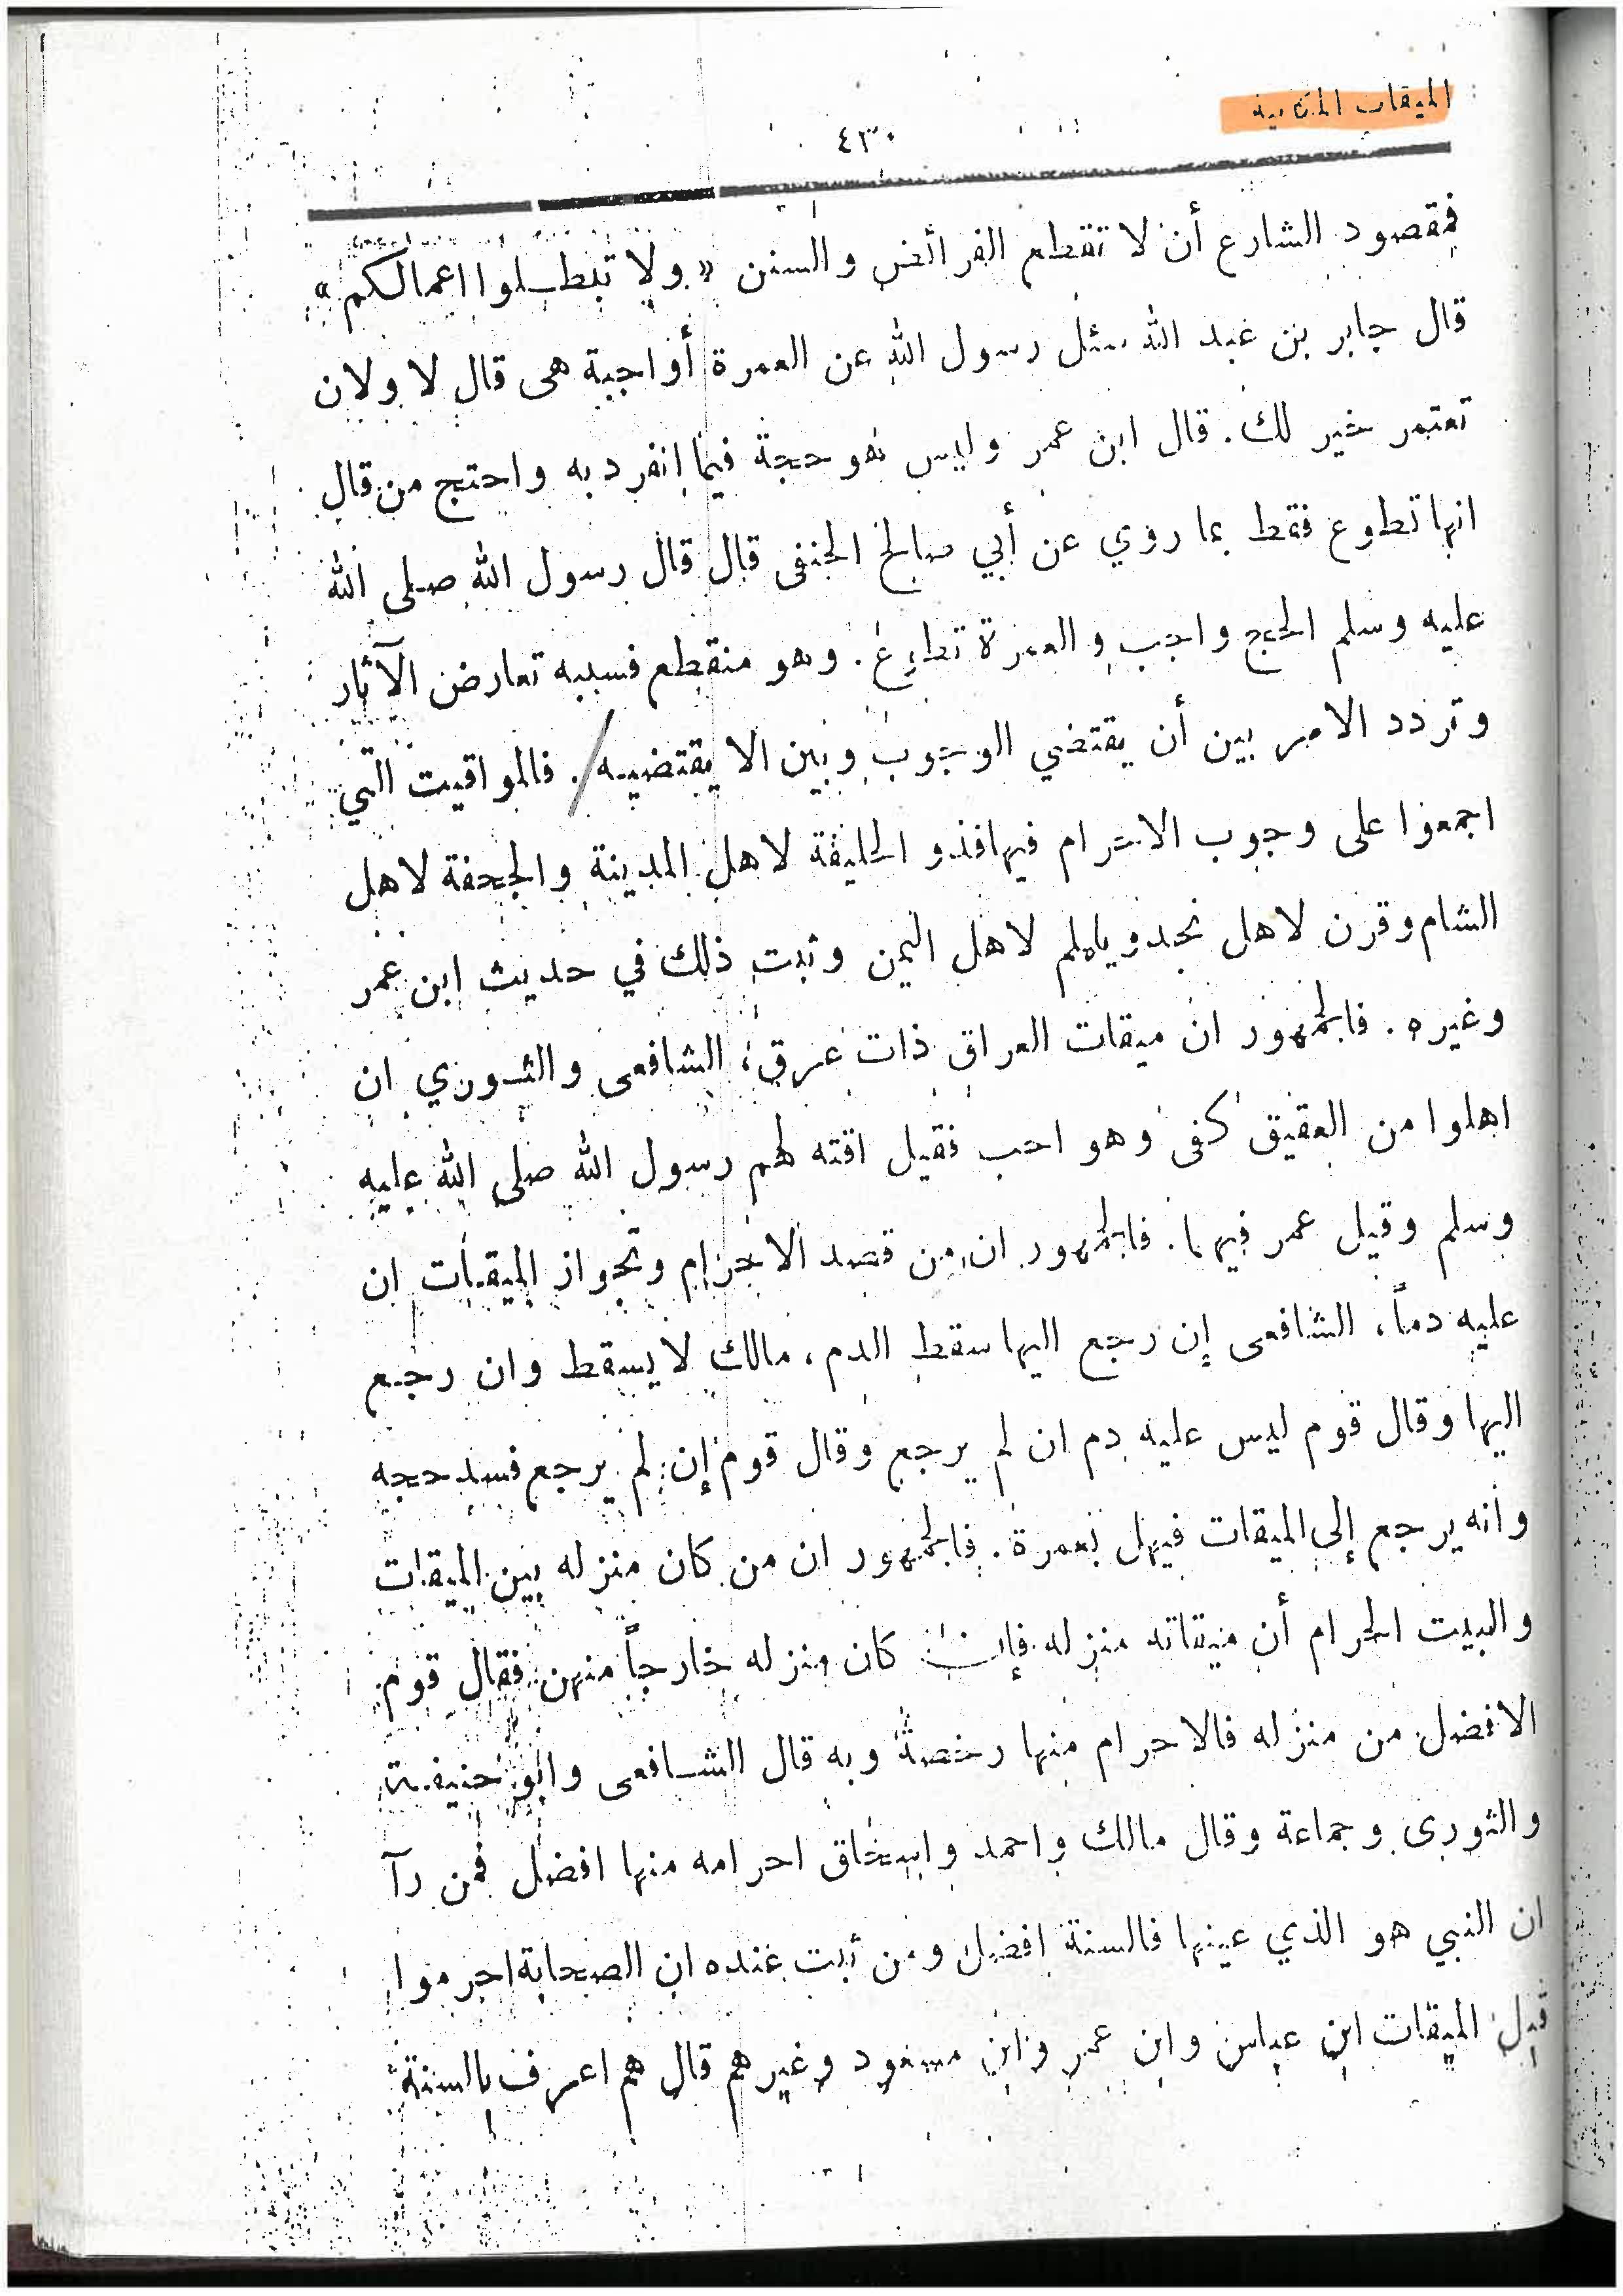 الميقات المكانية
٤٣٠
فمقصود الشارع أن لا تقطع الفرائض والسنن «ولا تبطلوا اعمالكم»
قال جابر بن عبد الله سئل رسول الله عن العمرة أواجبة هى قال لا ولان
تعتمر خير لك. قال ابن عمر وليس هو حجة فيما انفرد به واحتج من قال
انها تطوع فقط بما روي عن أبي صالح الحنفى قال قال رسول الله صلى الله
عليه وسلم الحج واجب والعمرة تطوع. وهو منقطع فسببه تعارض الآثار
وتردد الامر بين أن يقتضي الوجوب وبين الا يقتضيه/. فالمواقيت التي
اجمعوا على وجوب الاحرام فيها فذو الحليفة لاهل المدينة والجحفة لاهل
الشام وقرن لاهل نجد ويلملم لاهل اليمن وثبت ذلك في حديث ابن عمر
وغيره. فالجمهور ان ميقات العراق ذات عرق، الشافعى والثوري ان
اهلوا من العقيق كفى وهو احب فقيل اقته لهم رسول الله صلى الله عليه
وسلم وقيل عمر فيها. فالجمهور ان من قصد الاحرام وتجواز الميقات ان
عليه دماً، الشافعى إن رجع اليها سقط الدم، مالك لا يسقط وان رجع
اليها وقال قوم ليس عليه دم ان لم يرجع وقال قوم إن لم يرجع فسد حجه
وأنه يرجع إلى الميقات فيهل بعمرة. فالجمهور ان من كان منزله بين الميقات
والبيت الحرام أن ميقاته منزله فإن كان منزله خارجاً منهن فقال قوم
الافضل من منزله فالاحرام منها رخصة وبه قال الشافعى وابو حنيفة
والثورى وجماعة وقال مالك واحمد واسحاق احرامه منها افضل فمن رآ
ان النبي هو الذي عينها فالسنة افضل ومن ثبت عنده ان الصحابة احرموا
قبل الميقات ابن عباس وابن عمر وابن مسعود وغيرهم قال هم اعرف بالسنة